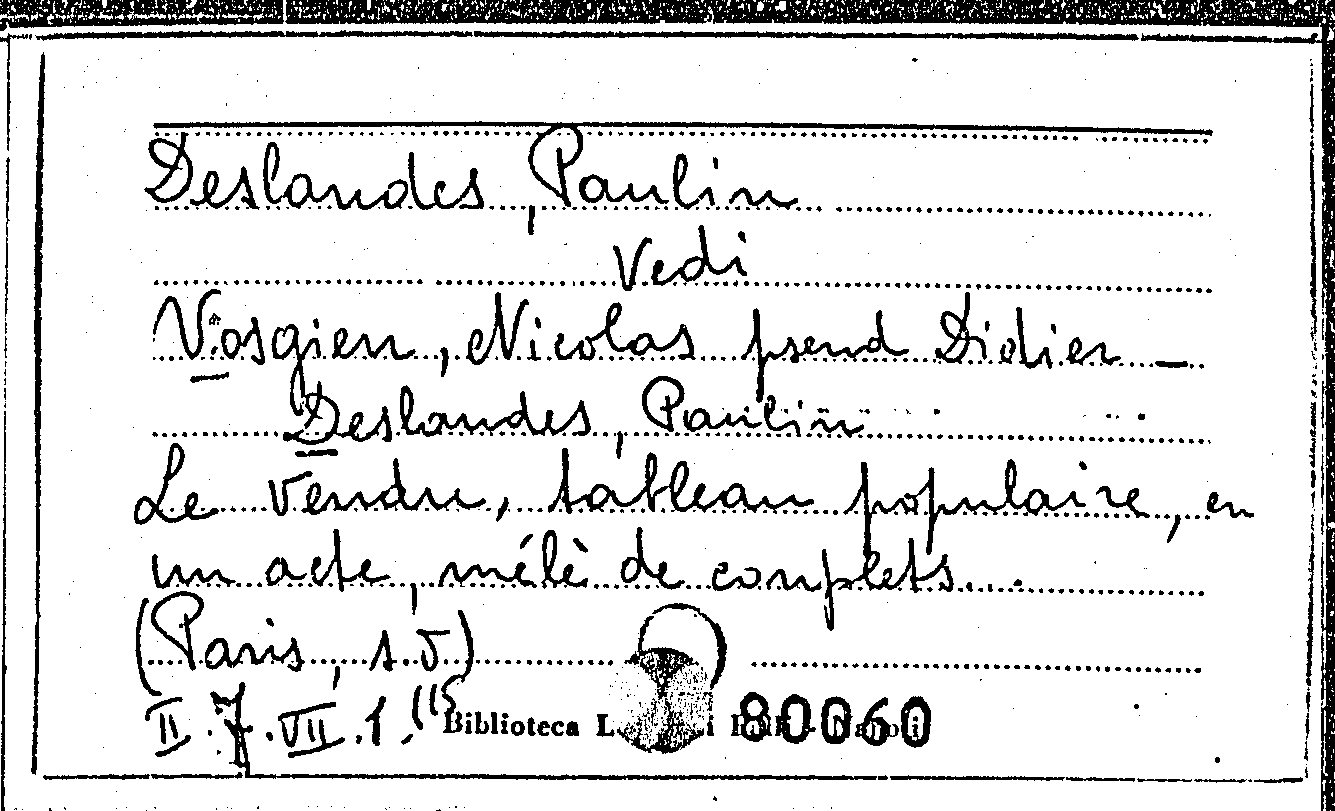 Deslandes, Paulin
Vedi
Vosgien, Nicolas pseud Didier -
Deslandes, Paulin
Le vendu, tableau populaire, en
un acte, mélè de couplets...
(Paris, s.d)
II.7.VII.1.(15
Biblioteca 80060